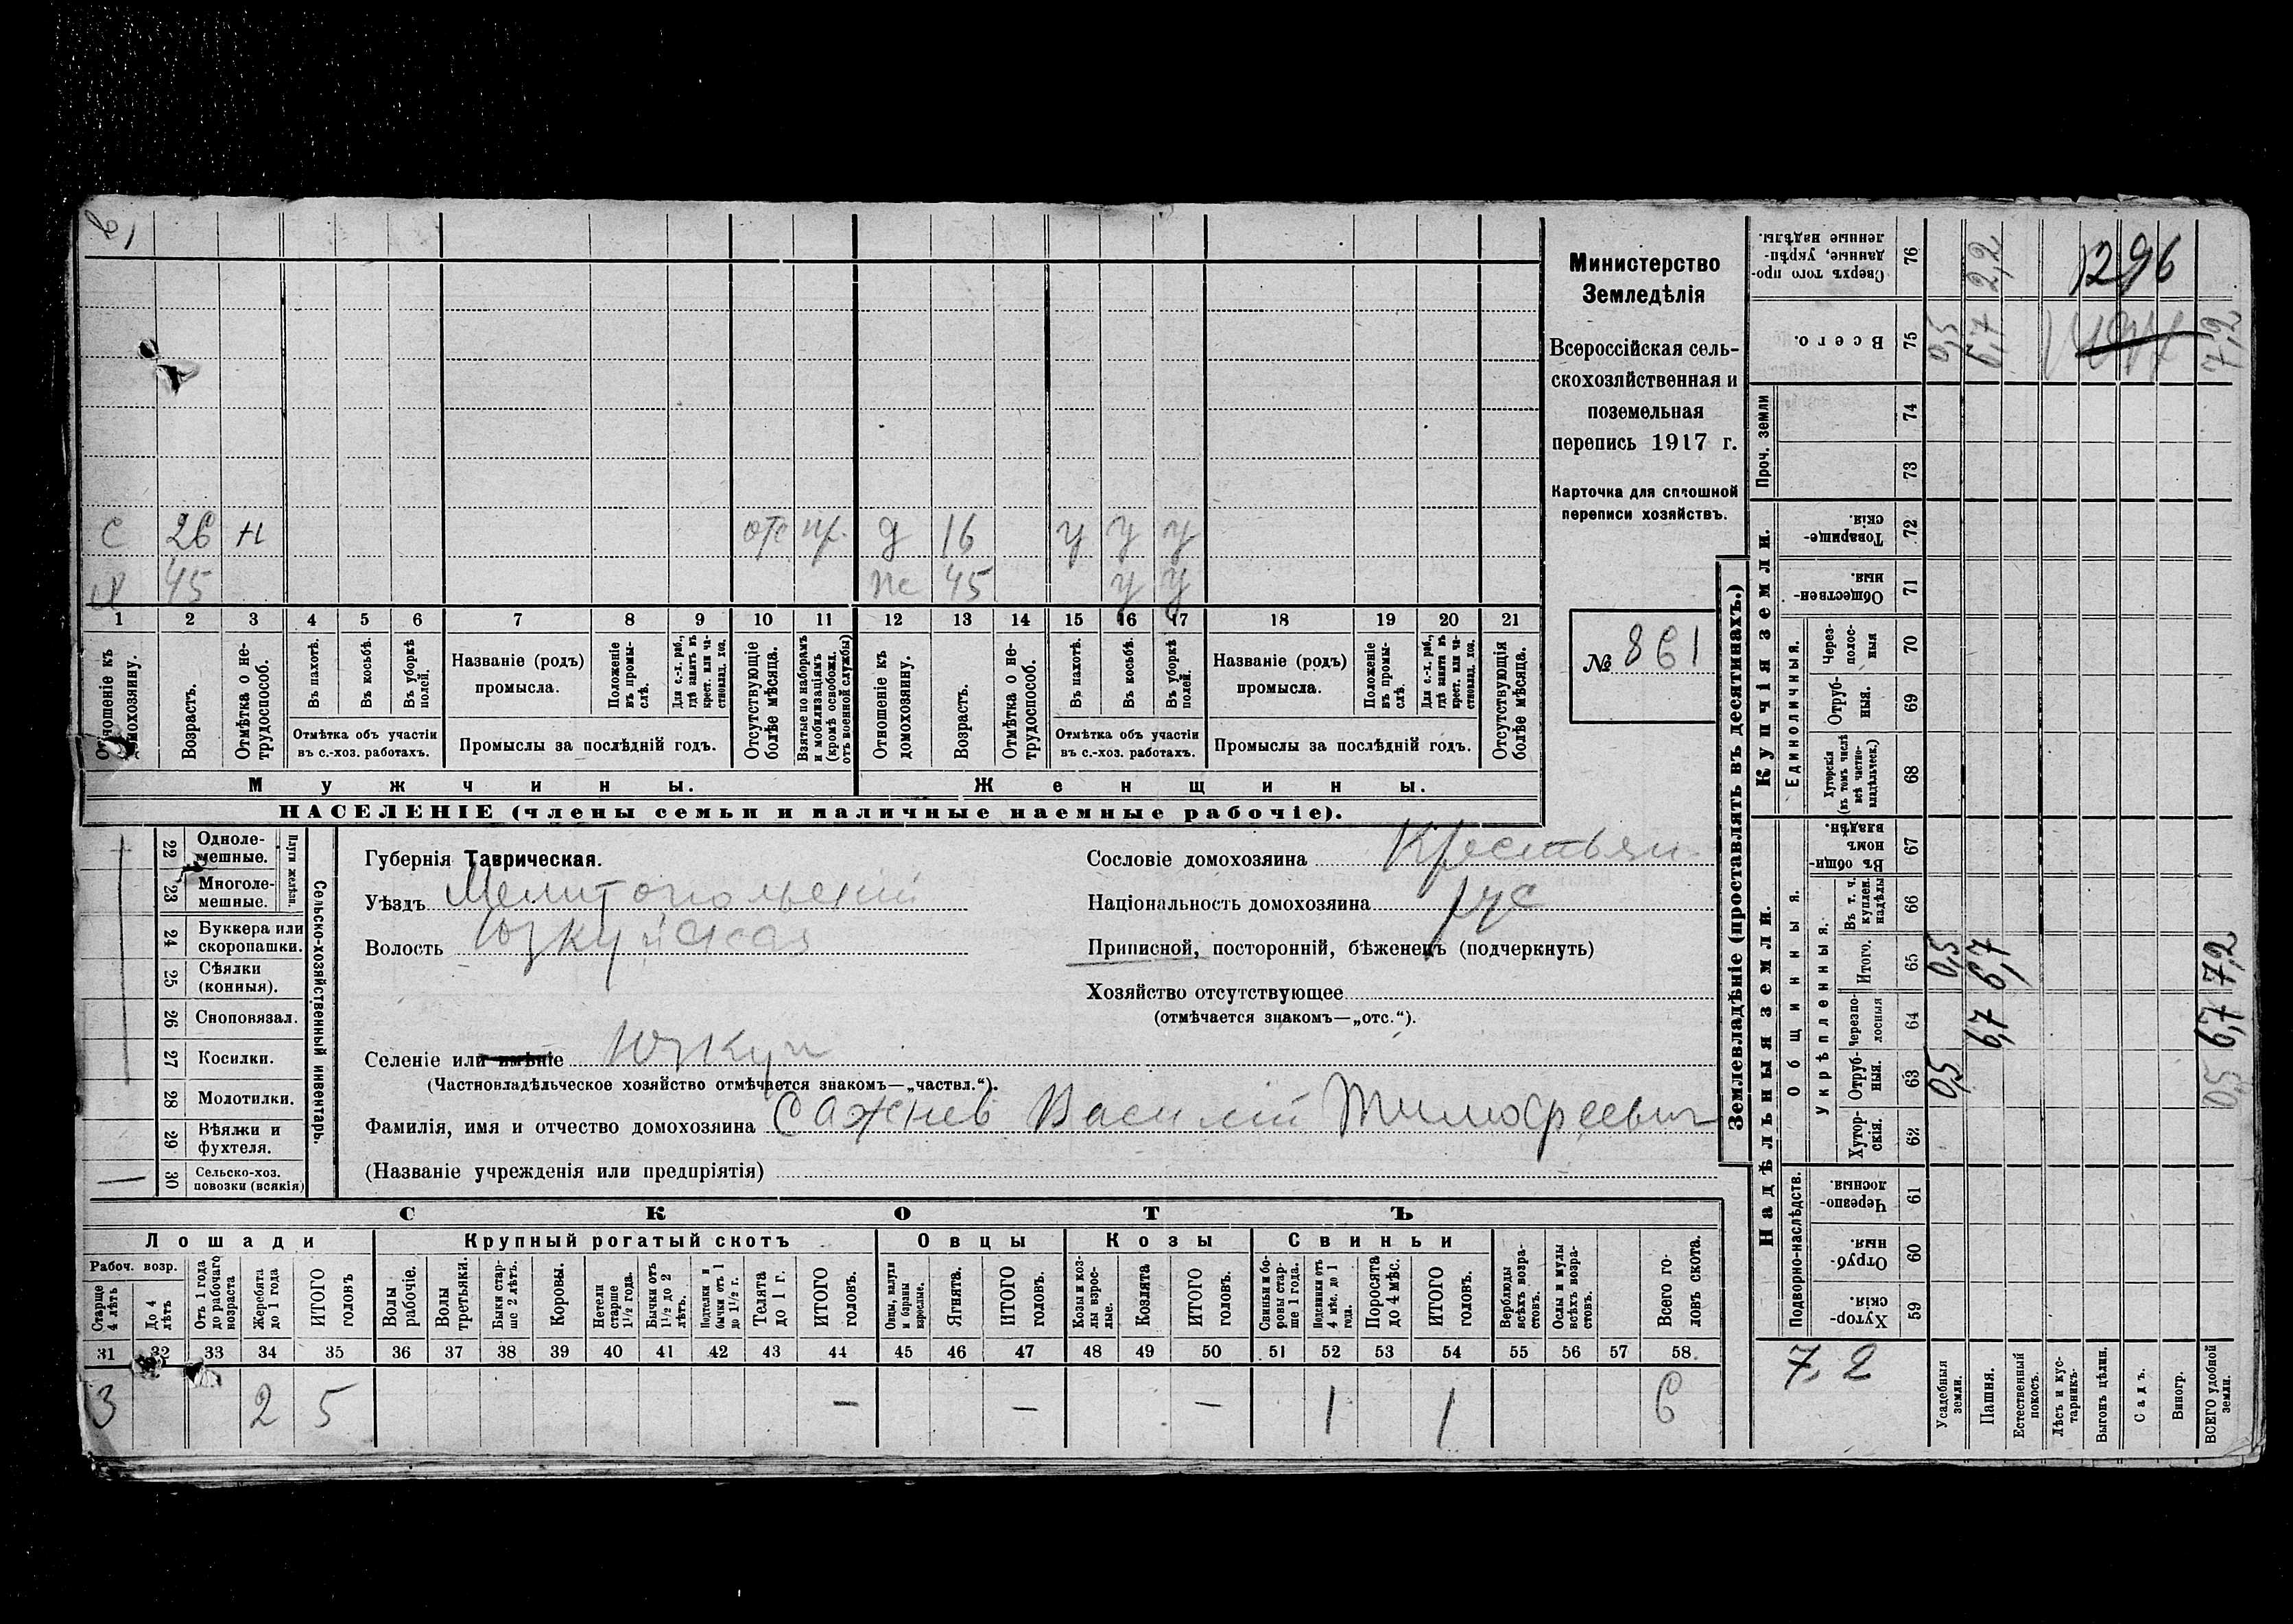 Министерство
Земледѣлія
Всероссійская сель-
скохозяйственная и
поземельная
перепись 1917 г.
Карточка для сплошной
переписи хозяйствъ.
№ 861
с 26 н отс пр. д 16 у у у
х 45 же 45 у у
1 2 3 4 5 6 7 8 9 10 11 12 13 14 15 16 17 18 19 20 21
Отношеніе къ домохозяину.
Возрастъ.
Отмѣтка о не-трудоспособ.
Въ пахотѣ.
Въ косьбѣ.
Въ уборкѣ полей.
Отмѣтка объ участіи
въ с.-хоз. работахъ.
Названіе (родъ)
промысла.
Положеніе въ промы-слѣ.
Для с.-х. раб., гдѣ занятъ въ крест. или ча-стновлад. хоз.
Промыслы за послѣдній годъ.
Отсутствующіе болѣе мѣсяца.
Взятые по наборамъ и мобилизаціямъ (кромѣ освобожд. отъ военной службы)
Отношеніе къ домохозяину.
Возрастъ.
Отмѣтка о не-трудоспособ.
Въ пахотѣ.
Въ косьбѣ.
Въ уборкѣ полей.
Отмѣтка объ участіи
въ с.-хоз. работахъ.
Названіе (родъ)
промысла.
Положеніе въ промы-слѣ.
Для с.-х. раб., гдѣ занята въ крест. или ча-стновлад. хоз.
Промыслы за послѣдній годъ.
Отсутствующія болѣе мѣсяца.
Мужчины.
Женщины.
НАСЕЛЕНІЕ (члены семьи и наличные наемные рабочіе).
22 Одноле-мешные.
23 Многоле-мешные.
Плуги желѣзн.
24 Буккера или скоропашки.
25 Сѣялки (конныя).
26 Сноповязал.
27 Косилки.
28 Молотилки.
29 Вѣялки и фухтеля.
30 Сельско-хоз. повозки (всякія)
Сельско-хозяйственный инвентарь.
Губернія Таврическая.
Уѣздъ Мелитопольскій
Волость Юзкуйская
Селеніе или имѣніе Юзкуи
(Частновладѣльческое хозяйство отмѣчается знакомъ—„частвл.“).
Фамилія, имя и отчество домохозяина Сажнев Василій Тимофеевич
(Названіе учрежденія или предпріятія)
Сословіе домохозяина Крестьян.
Національность домохозяина рус
Приписной, посторонній, бѣженецъ (подчеркнуть)
Хозяйство отсутствующее
(отмѣчается знакомъ—„отс.“).
СКОТЪ
Лошади
Крупный рогатый скотъ
Овцы
Козы
Свиньи
Рабоч. возр.
Старще 4 лѣтъ
До 4 лѣтъ
Отъ 1 года до рабочаго возраста
Жеребята до 1 года
ИТОГО головъ
Волы рабочіе.
Волы третьяки.
Быки стар-ше 2 лѣтъ.
Коровы.
Нетели старше 1½ года.
Бычки отъ 1½ до 2 лѣтъ.
Подтелки и бычки отъ 1 до 1½ г.
Телята до 1 г.
ИТОГО головъ.
Овцы, валухи и бараны взрослые.
Ягнята.
ИТОГО головъ.
Козы и коз-лы взрос-лые.
Козлята
ИТОГО головъ.
Свиньи и бо-ровы стар-ше 1 года.
Подсвинки отъ 4 мѣс. до 1 года.
Поросята до 4 мѣс.
ИТОГО головъ.
Верблюды всѣхъ возра-стовъ.
Ослы и мулы всѣхъ возра-стовъ.
Всего го-ловъ скота.
31 32 33 34 35 36 37 38 39 40 41 42 43 44 45 46 47 48 49 50 51 52 53 54 55 56 57 58
3 2 5 — — — 1 1 6
Землевладѣніе (проставлять въ десятинахъ.)
Надѣльныя земли.
Купчія земли.
Проч. земли
Подворно-наслѣдств.
Общинныя.
Укрѣпленныя.
Единоличныя.
Хутор-скія. 59
Отруб-ныя. 60
Черезпо-лосныя. 61
Хутор-скія. 62
Отруб-ныя. 63
Черезпо-лосныя 64
Итого. 65
Въ т. ч. куплен. надѣлы 66
Въ общин-номъ владѣн. 67
Хуторскія (въ томъ числѣ всѣ частно-владѣльческ.) 68
Отруб-ныя. 69
Через-полос-ныя 70
Обществен-ныя. 71
Товарище-скія. 72
73
74
Всего. 75
Сверхъ того про-данные, укрѣп-ленные надѣлы. 76
7,2
Усадебныя земли. 0,5 0,5 0,5
Пашня. 6,7 6,7 6,7 2,2
Естественный покосъ.
Лѣсъ и кус-тарникъ.
Выгонъ цѣлин.
Садъ.
Виногр.
ВСЕГО удобной земли. 0,5 6,7 7,2 7,2
1296